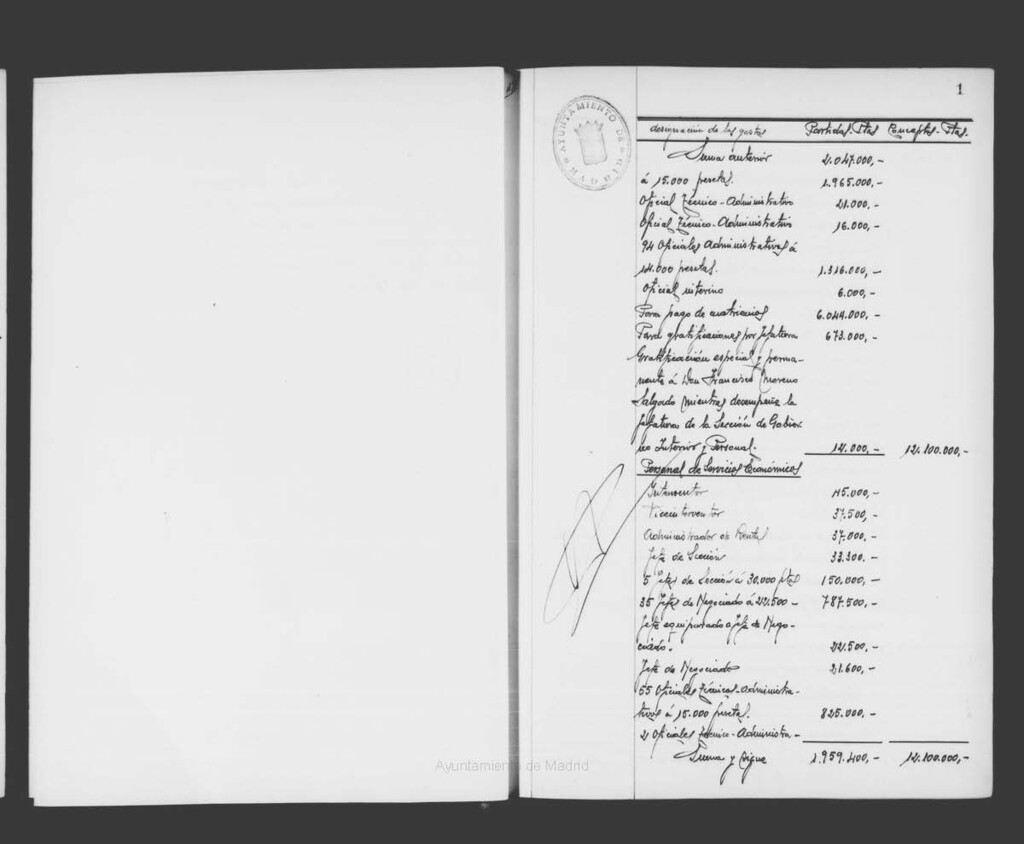 1
AYUNTAMIENTO DE MADRID
designación de los gastos Partidas-Ptas Conceptos-Ptas.
Suma anterior 2.047.000,-
á 15.000 pesetas. 1.965.000,-
Oficial Técnico-Administrativo 21.000,-
Oficial Técnico-Administrativo 16.000,-
94 Oficiales Administrativos á
14.000 pesetas. 1.316.000,-
Oficial interino 6.000,-
Para pago de cuatrienios 6.044.000,-
Para gratificaciones por Jefatura 673.000,-
Gratificación especial y perma-
nente á Don Francisco Moreno
Salgado mientras desempeñe la
Jefatura de la Sección de Gobier-
no Interior y Personal. 12.000,- 12.100.000,-
Personal de Servicios Económicos
Interventor 45.000,-
Viceinterventor 37.500,-
Administrador de Rentas 37.000.-
Jefe de Sección 33.300.-
5 Jefes de Sección á 30.000 ptas 150.000,-
35 Jefes de Negociado á 22.500- 787.500,-
Jefe equiparado a Jefe de Nego-
ciado. 22.500,-
Jefe de Negociado 21.600,-
55 Oficiales Técnicos-Administra-
tivos á 15.000 pesetas. 825.000,-
2 Oficiales Técnico-Administra-
Suma y sigue 1.959.400,- 12.100.000,-
Ayuntamiento de Madrid